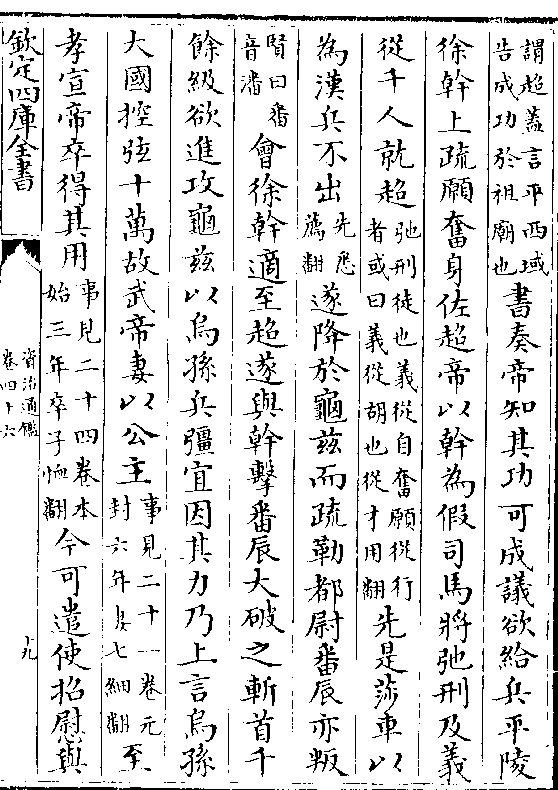 謂超蓋言平西域告成功於祖廟也書奏帝知其功可成議欲給兵平陵
徐幹上疏願奮身佐超帝以幹為假司馬將弛刑及義
從千人就超弛刑徒也義從自奮願從行者或曰義從胡也從才用翻先是莎車以
為漢兵不出先悉薦翻遂降於龜茲而疏勒都尉番辰亦叛
賢曰番音潘會徐幹適至超遂與幹擊番辰大破之斬首千
餘級欲進攻龜茲以烏孫兵彊宜因其力乃上言烏孫
大國控弦十萬故武帝妻以公主事見二十一卷元封六年妻七細翻至
孝宣帝卒得其用事見二十四卷本始三年卒子恤翻今可遣使招慰與
欽定四庫全書
資治通鑑
卷四十六
十九